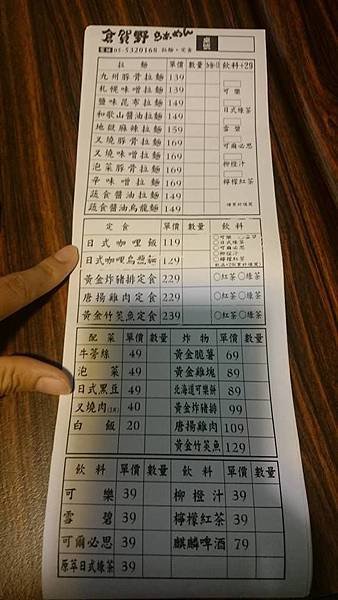 倉賀野 らぁめん 桌號
電話 05-5320168 拉麵‧定食
拉麵 單價 數量 飲料+29
九州豚骨拉麵 139
札幌味噌拉麵 139
鹽味昆布拉麵 149 可樂
和歌山醬油拉麵 149
地獄麻辣拉麵 159 日式綠茶
叉燒豚骨拉麵 169
叉燒味噌拉麵 169 雪碧
泡菜豚骨拉麵 169 可爾必思
辛味噌拉麵 169 柳橙汁
蔬食醬油拉麵 149 檸檬紅茶
蔬食醬油烏龍麵 149
定食 單價 數量 飲料
日式咖哩飯 119 ○可樂
○日式綠茶
○可爾必思
日式咖哩烏龍麵 129 ○柳橙汁
○檸檬紅茶
黃金炸豬排定食 229 ○紅茶○綠茶
唐揚雞肉定食 229 ○紅茶○綠茶
黃金竹莢魚定食 239 ○紅茶○綠茶
配菜 單價 數量 炸物 單價 數量
牛蒡絲 49 黃金脆薯 69
泡菜 49 黃金雞塊 89
日式黑豆 49 北海道可樂餅 89
叉燒肉 40 黃金炸豬排 99
白飯 20 唐揚雞肉 109
黃金竹莢魚 129
飲料 單價 數量 飲料 單價 數量
可樂 39 柳橙汁 39
雪碧 39 檸檬紅茶 39
可爾必思 39 麒麟啤酒 79
原萃日式綠茶 39